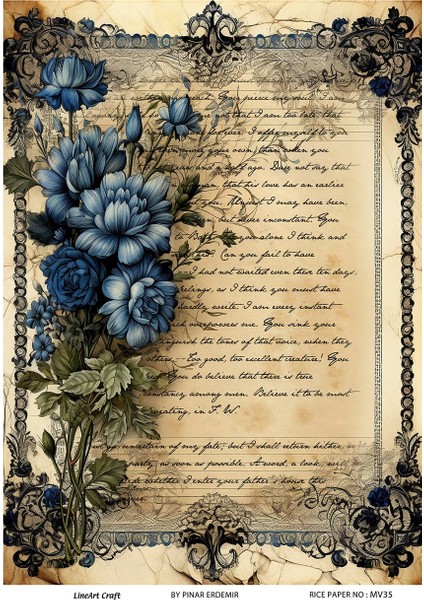 reach. You pierce my soul. I am
not that I am too late, that
for ever. I offer myself to you
even more your own, than when you
years and a half ago. Dare not say that
man, that his love has an earlier
Unjust I may have been,
been, but never inconstant. You
to Bath. you alone I think and
Can you fail to have
I had not waited even these ten days,
feelings, as I think you must have
hardly write. I am every instant
which overpowers me. You sink your
distinguish the tones of that voice, when they
others.--Too good, too excellent creature! You
You do believe that there is true
constancy among men. Believe it to be most
in F. W.
uncertain of my fate; but I shall return hither,
party, as soon as possible. A word, a look, will
whether I enter your father's house this
LineArt Craft
BY PINAR ERDEMIR
RICE PAPER NO : MV35